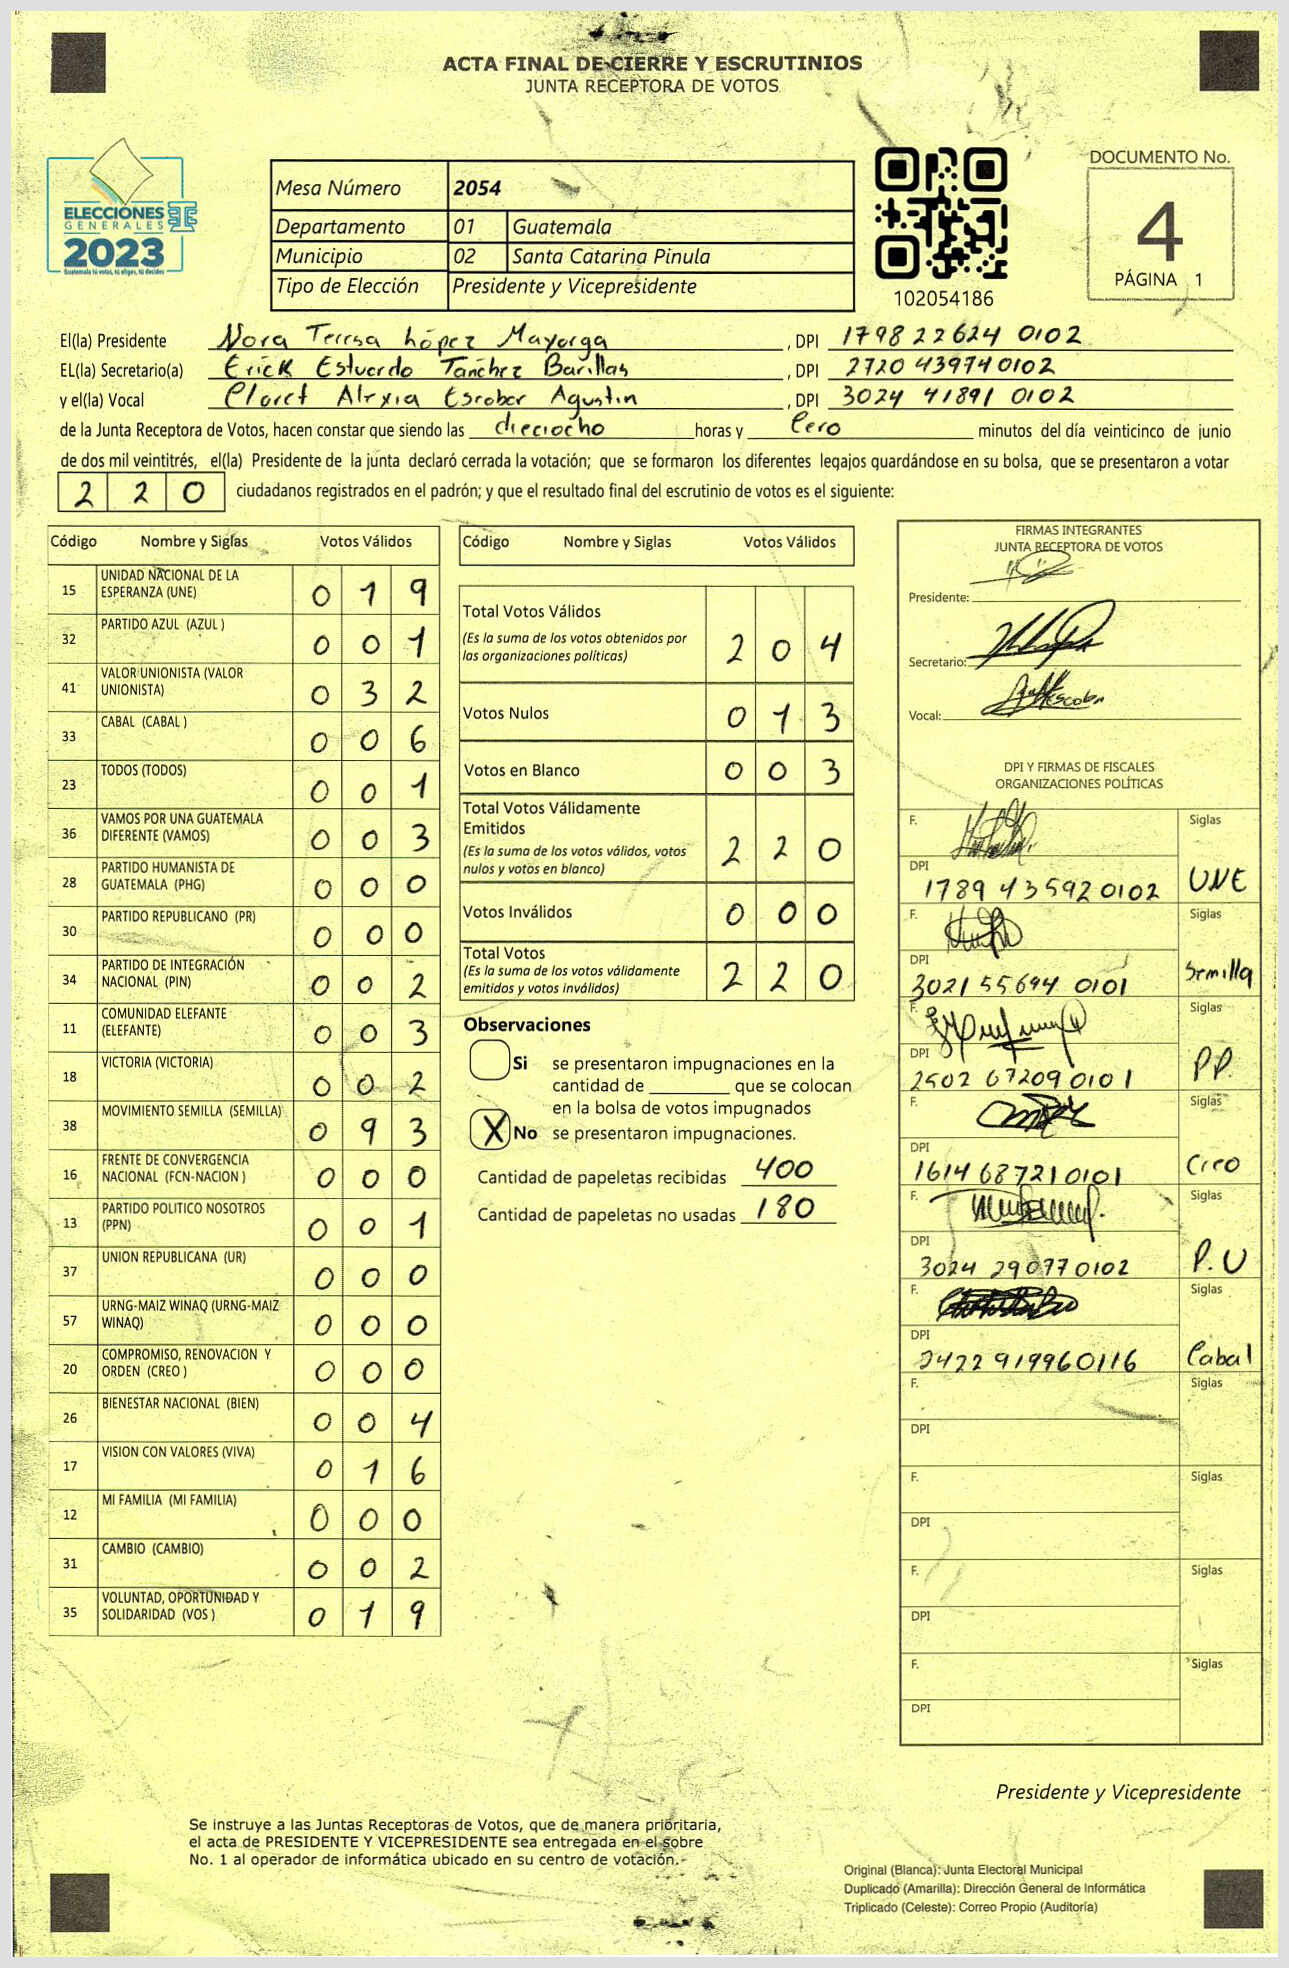 ACTA FINAL DE CIERRE Y ESCRUTINIOS
JUNTA RECEPTORA DE VOTOS
ELECCIONES
GENERALES
2023
Guatemala tú votas, tú eliges, tú decides
Mesa Número 2054
Departamento 01 Guatemala
Municipio 02 Santa Catarina Pinula
Tipo de Elección Presidente y Vicepresidente
102054186
DOCUMENTO No.
4
PÁGINA 1
El(la) Presidente Nora Teresa López Mayorga , DPI 1798 22624 0102
EL(la) Secretario(a) Erick Estuardo Tánchez Barillas , DPI 2720 43974 0102
y el(la) Vocal Cloret Alexia Escobar Agustin , DPI 3024 41891 0102
de la Junta Receptora de Votos, hacen constar que siendo las dieciocho horas y Cero minutos del día veinticinco de junio
de dos mil veintitrés, el(la) Presidente de la junta declaró cerrada la votación; que se formaron los diferentes legajos guardándose en su bolsa, que se presentaron a votar
2 2 0 ciudadanos registrados en el padrón; y que el resultado final del escrutinio de votos es el siguiente:
Código Nombre y Siglas Votos Válidos
15 UNIDAD NACIONAL DE LA ESPERANZA (UNE) 0 1 9
32 PARTIDO AZUL (AZUL ) 0 0 1
41 VALOR UNIONISTA (VALOR UNIONISTA) 0 3 2
33 CABAL (CABAL ) 0 0 6
23 TODOS (TODOS) 0 0 1
36 VAMOS POR UNA GUATEMALA DIFERENTE (VAMOS) 0 0 3
28 PARTIDO HUMANISTA DE GUATEMALA (PHG) 0 0 0
30 PARTIDO REPUBLICANO (PR) 0 0 0
34 PARTIDO DE INTEGRACIÓN NACIONAL (PIN) 0 0 2
11 COMUNIDAD ELEFANTE (ELEFANTE) 0 0 3
18 VICTORIA (VICTORIA) 0 0 2
38 MOVIMIENTO SEMILLA (SEMILLA) 0 9 3
16 FRENTE DE CONVERGENCIA NACIONAL (FCN-NACION ) 0 0 0
13 PARTIDO POLITICO NOSOTROS (PPN) 0 0 1
37 UNION REPUBLICANA (UR) 0 0 0
57 URNG-MAIZ WINAQ (URNG-MAIZ WINAQ) 0 0 0
20 COMPROMISO, RENOVACION Y ORDEN (CREO ) 0 0 0
26 BIENESTAR NACIONAL (BIEN) 0 0 4
17 VISION CON VALORES (VIVA) 0 1 6
12 MI FAMILIA (MI FAMILIA) 0 0 0
31 CAMBIO (CAMBIO) 0 0 2
35 VOLUNTAD, OPORTUNIDAD Y SOLIDARIDAD (VOS ) 0 1 9
Código Nombre y Siglas Votos Válidos
Total Votos Válidos
(Es la suma de los votos obtenidos por
las organizaciones políticas) 2 0 4
Votos Nulos 0 1 3
Votos en Blanco 0 0 3
Total Votos Válidamente
Emitidos
(Es la suma de los votos válidos, votos
nulos y votos en blanco) 2 2 0
Votos Inválidos 0 0 0
Total Votos
(Es la suma de los votos válidamente
emitidos y votos inválidos) 2 2 0
Observaciones
Si se presentaron impugnaciones en la
cantidad de ________ que se colocan
en la bolsa de votos impugnados
X No se presentaron impugnaciones.
Cantidad de papeletas recibidas 400
Cantidad de papeletas no usadas 180
FIRMAS INTEGRANTES
JUNTA RECEPTORA DE VOTOS
Presidente:
Secretario:
Vocal:
DPI Y FIRMAS DE FISCALES
ORGANIZACIONES POLÍTICAS
F. Siglas
DPI 1789 43592 0102 UNE
F. Siglas
DPI 3021 55694 0101 Semilla
F. Siglas
DPI 2502 67209 0101 P.P.
F. Siglas
DPI 1614 68721 0101 Creo
F. Siglas
DPI 3024 29077 0102 P.U
F. Siglas
DPI 2422 91996 0116 Cabal
F. Siglas
DPI
F. Siglas
DPI
F. Siglas
DPI
F. Siglas
DPI
Presidente y Vicepresidente
Se instruye a las Juntas Receptoras de Votos, que de manera prioritaria,
el acta de PRESIDENTE Y VICEPRESIDENTE sea entregada en el sobre
No. 1 al operador de informática ubicado en su centro de votación.
Original (Blanca): Junta Electoral Municipal
Duplicado (Amarilla): Dirección General de Informática
Triplicado (Celeste): Correo Propio (Auditoría)